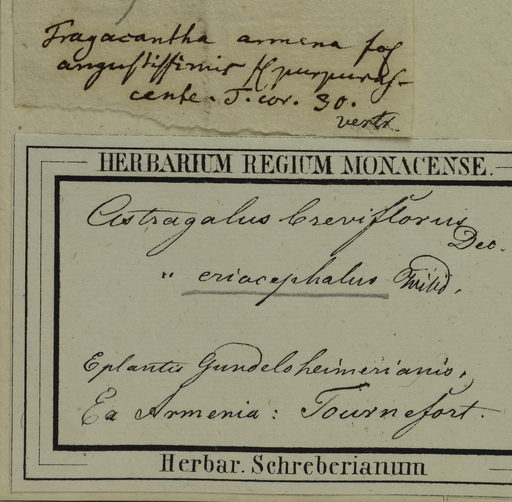 Tragacantha armena fol
angustissimis fl purpuras-
cente. T. cor. 30.
vertx.
HERBARIUM REGIUM MONACENSE.
Astragalus breviflorus Dec.
" eriocephalus Willd.
E plantis Gundelsheimerianis,
Ex Armenia: Tournefort.
Herbar. Schreberianum